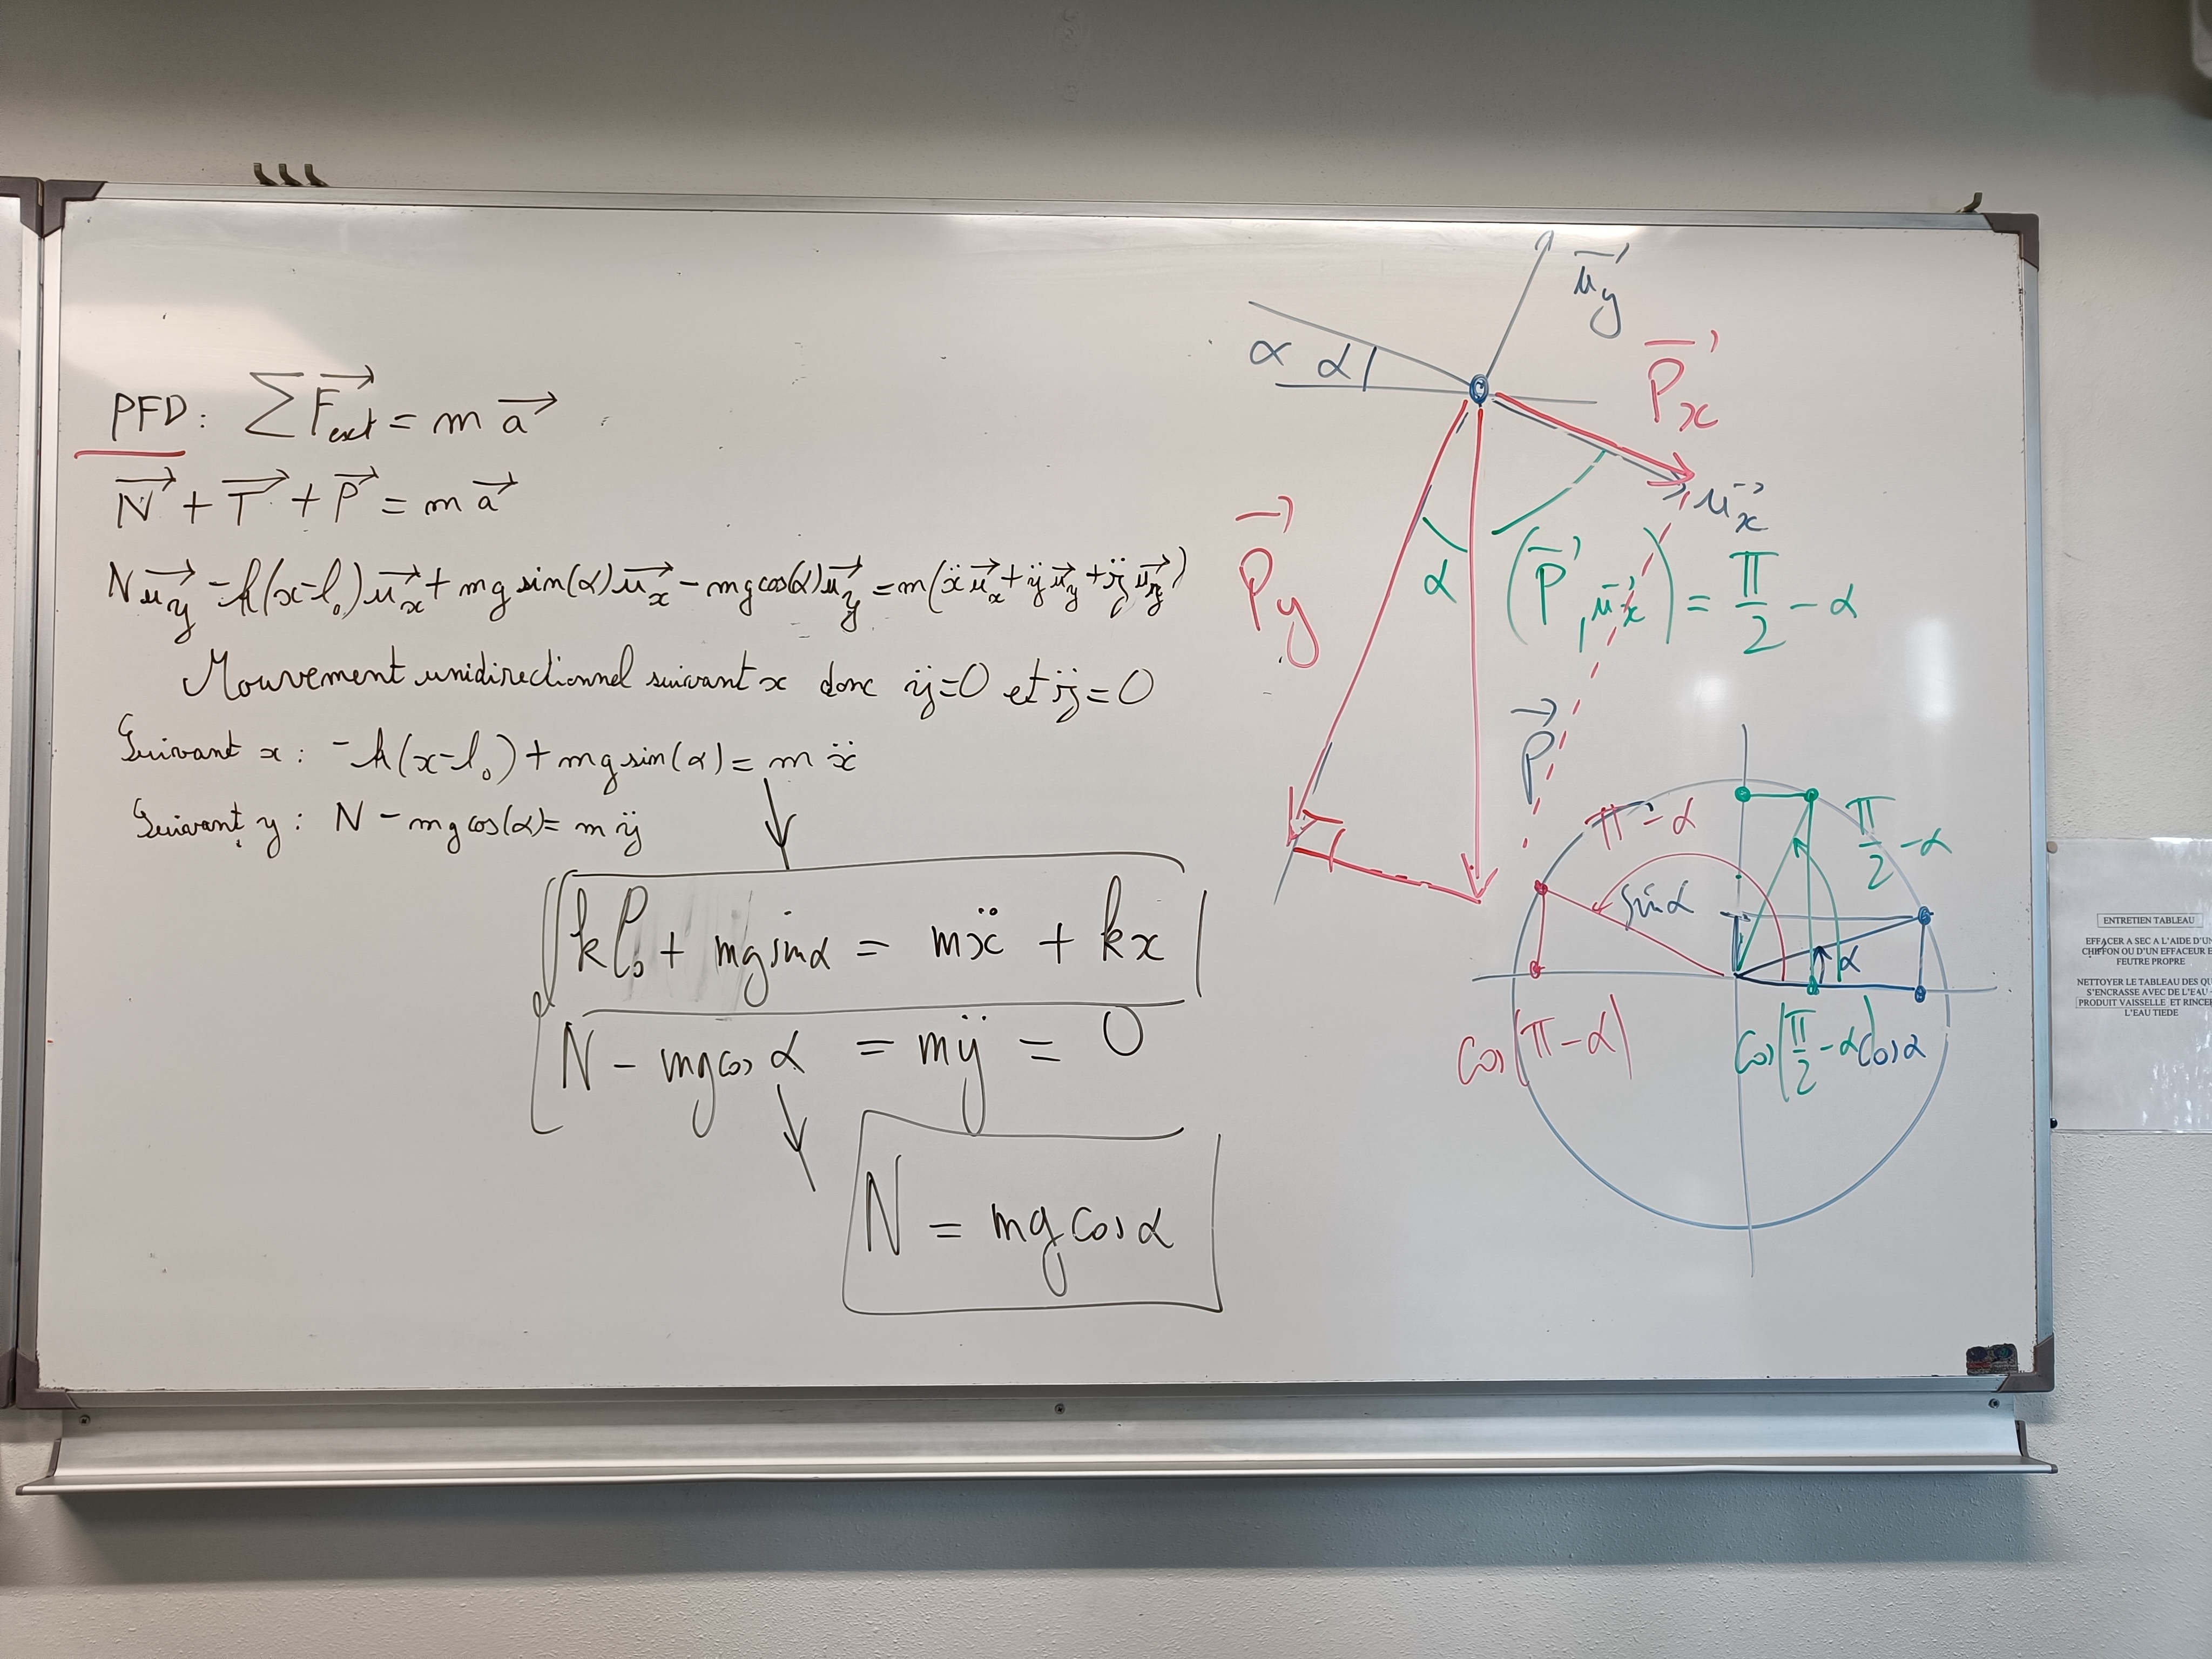 PFD : ∑F⃗ext = m a⃗
N⃗ + T⃗ + P⃗ = m a⃗
N u⃗y - k(x-l₀) u⃗x + mg sin(α) u⃗x - mg cos(α) u⃗y = m(ẍ u⃗x + ÿ u⃗y + z̈ u⃗z)
Mouvement unidirectionnel suivant x donc ÿ=0 et z̈=0
Suivant x : -k(x-l₀) + mg sin(α) = m ẍ
Suivant y : N - mg cos(α) = m ÿ
kl₀ + mg sinα = mẍ + kx
N - mg cos α = mÿ = 0
N = mg cos α
u⃗y
α α
P⃗x
u⃗x
P⃗y
α
(P⃗, u⃗x) = π/2 - α
P⃗
π - α
π/2 - α
sin α
α
cos(π - α)
cos(π/2 - α)
cos α
ENTRETIEN TABLEAU
EFFACER A SEC A L'AIDE D'UN
CHIFFON OU D'UN EFFACEUR E
FEUTRE PROPRE
NETTOYER LE TABLEAU DES QU
S'ENCRASSE AVEC DE L'EAU
PRODUIT VAISSELLE ET RINCE
L'EAU TIEDE